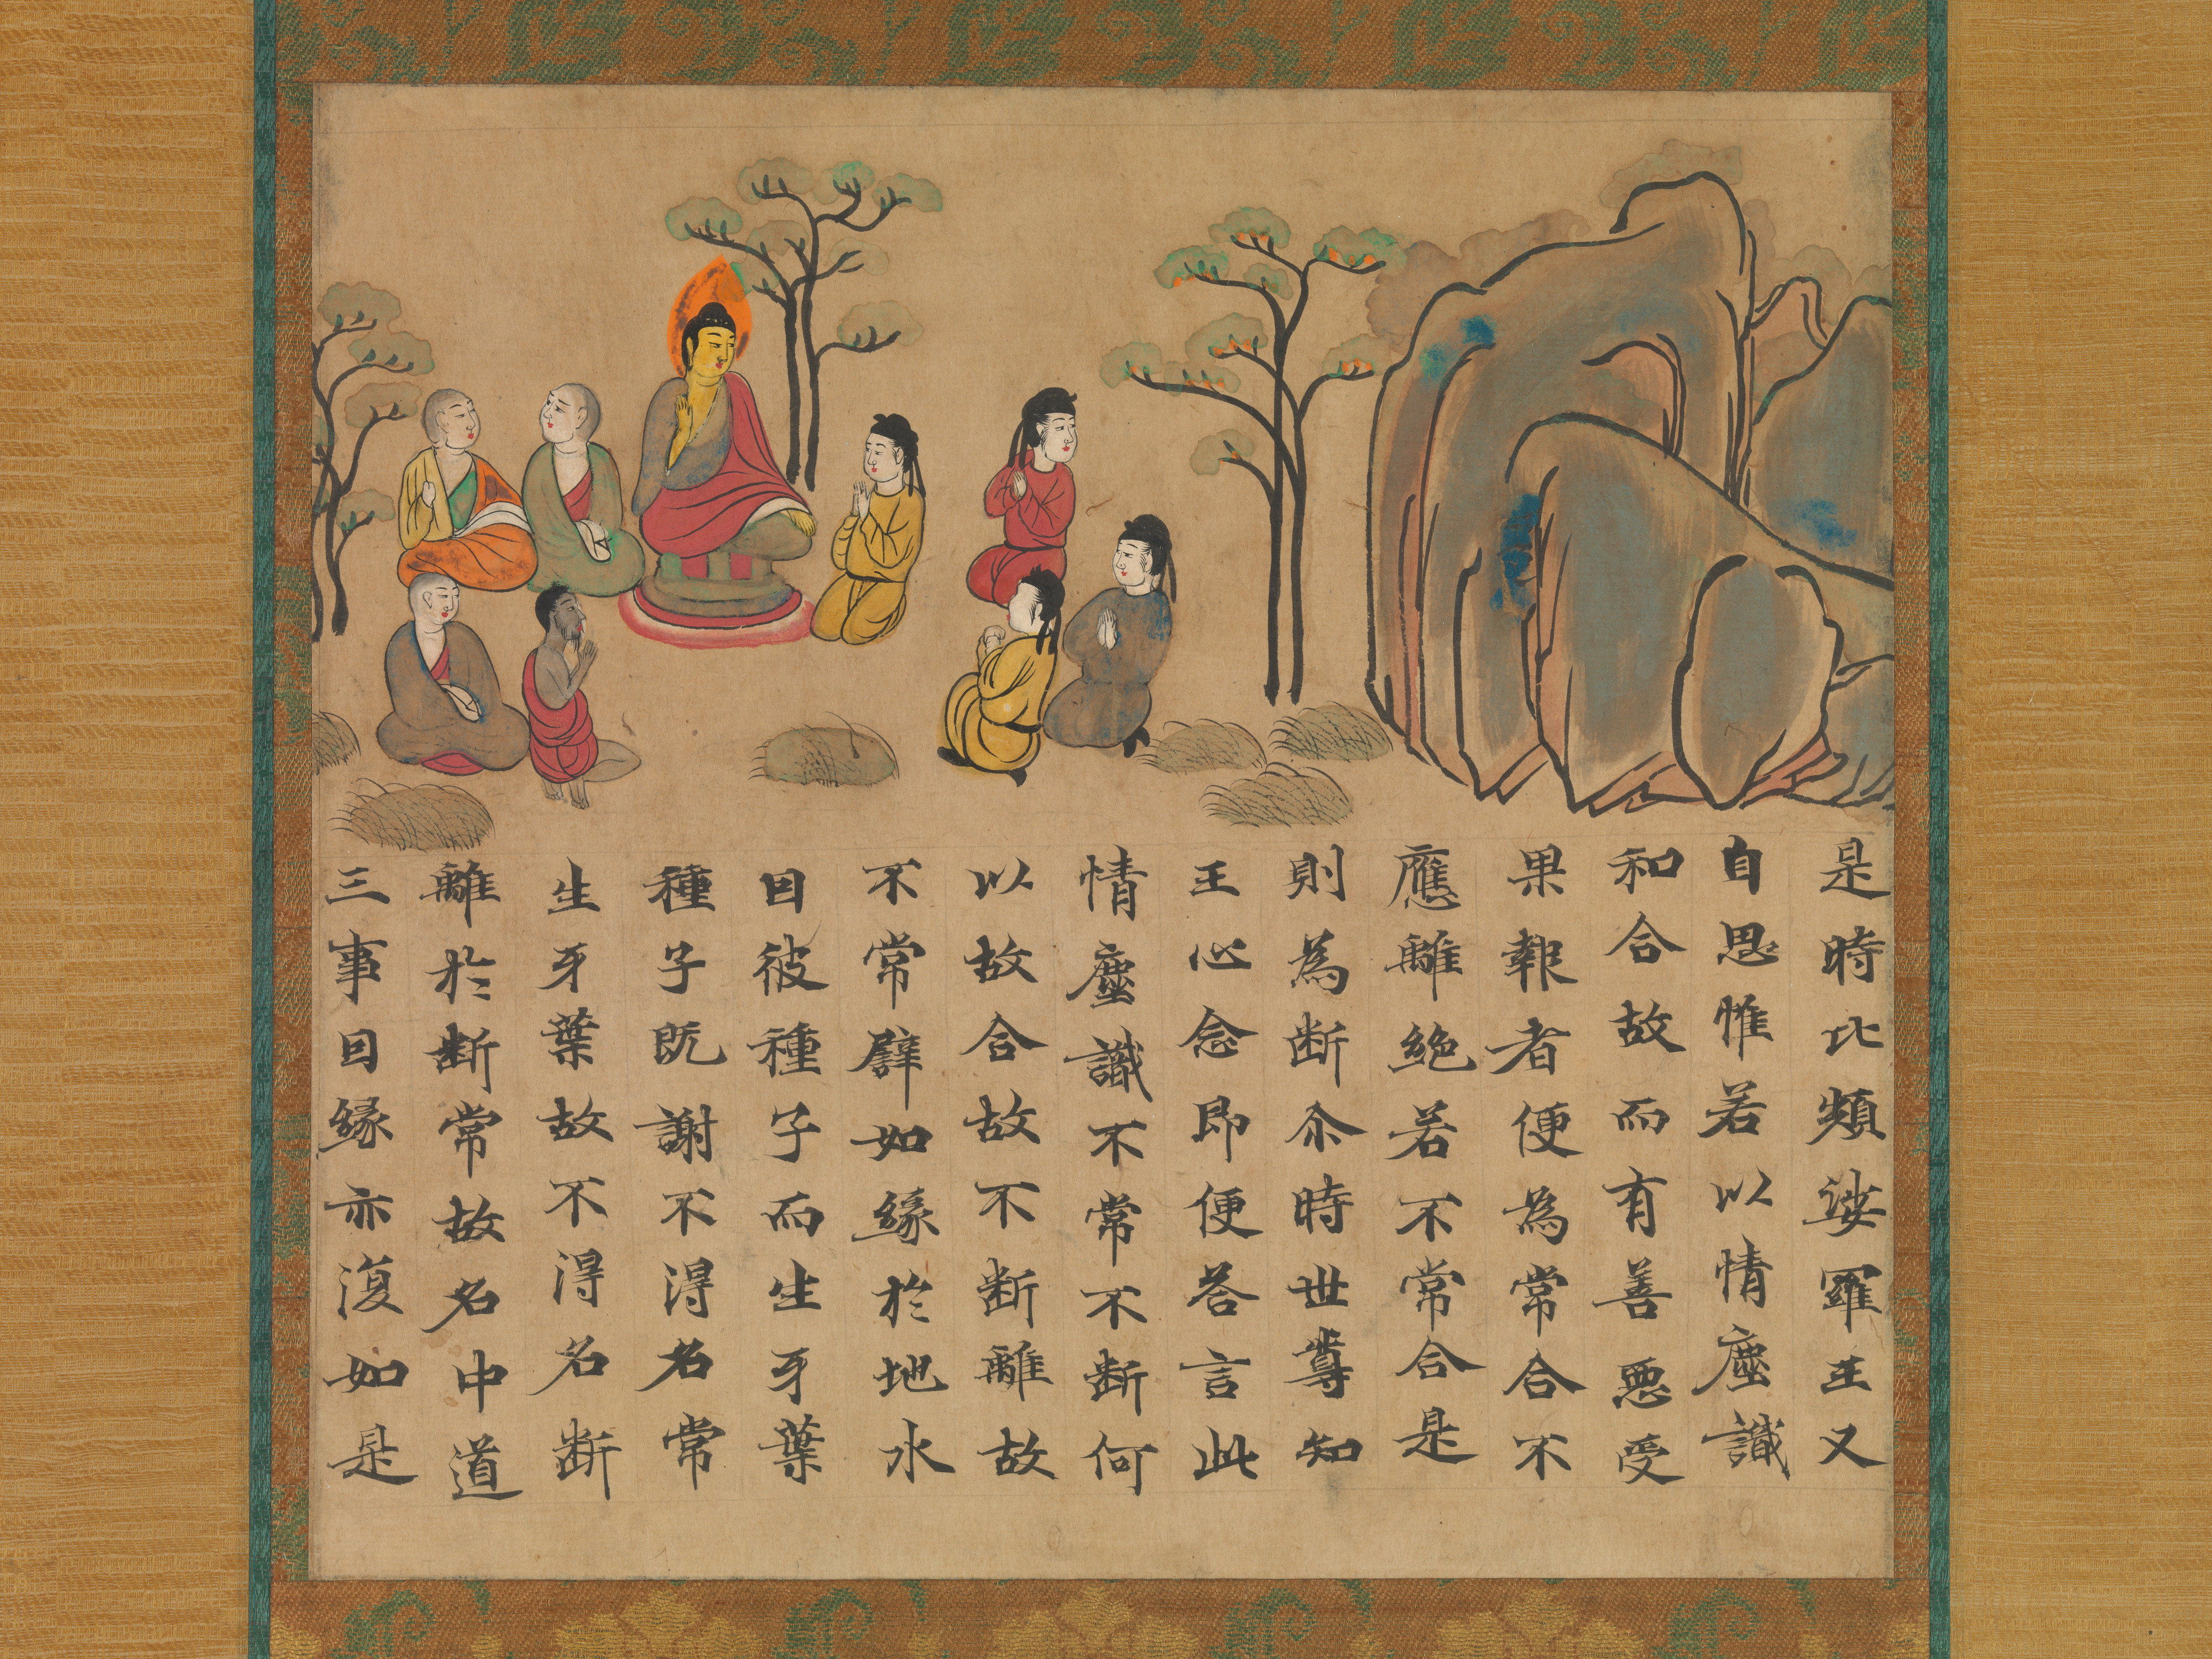 是時比頻娑羅王又
自思惟若以情塵識
和合故而有善惡受
果報者便為常合不
應離絶若不常合是
則為断尒時世尊知
王心念即便荅言此
情塵識不常不断何
以故合故不断離故
不常譬如緣於地水
因彼種子而生牙葉
種子既謝不得名常
生牙葉故不得名断
離於断常故名中道
三事因縁亦復如是